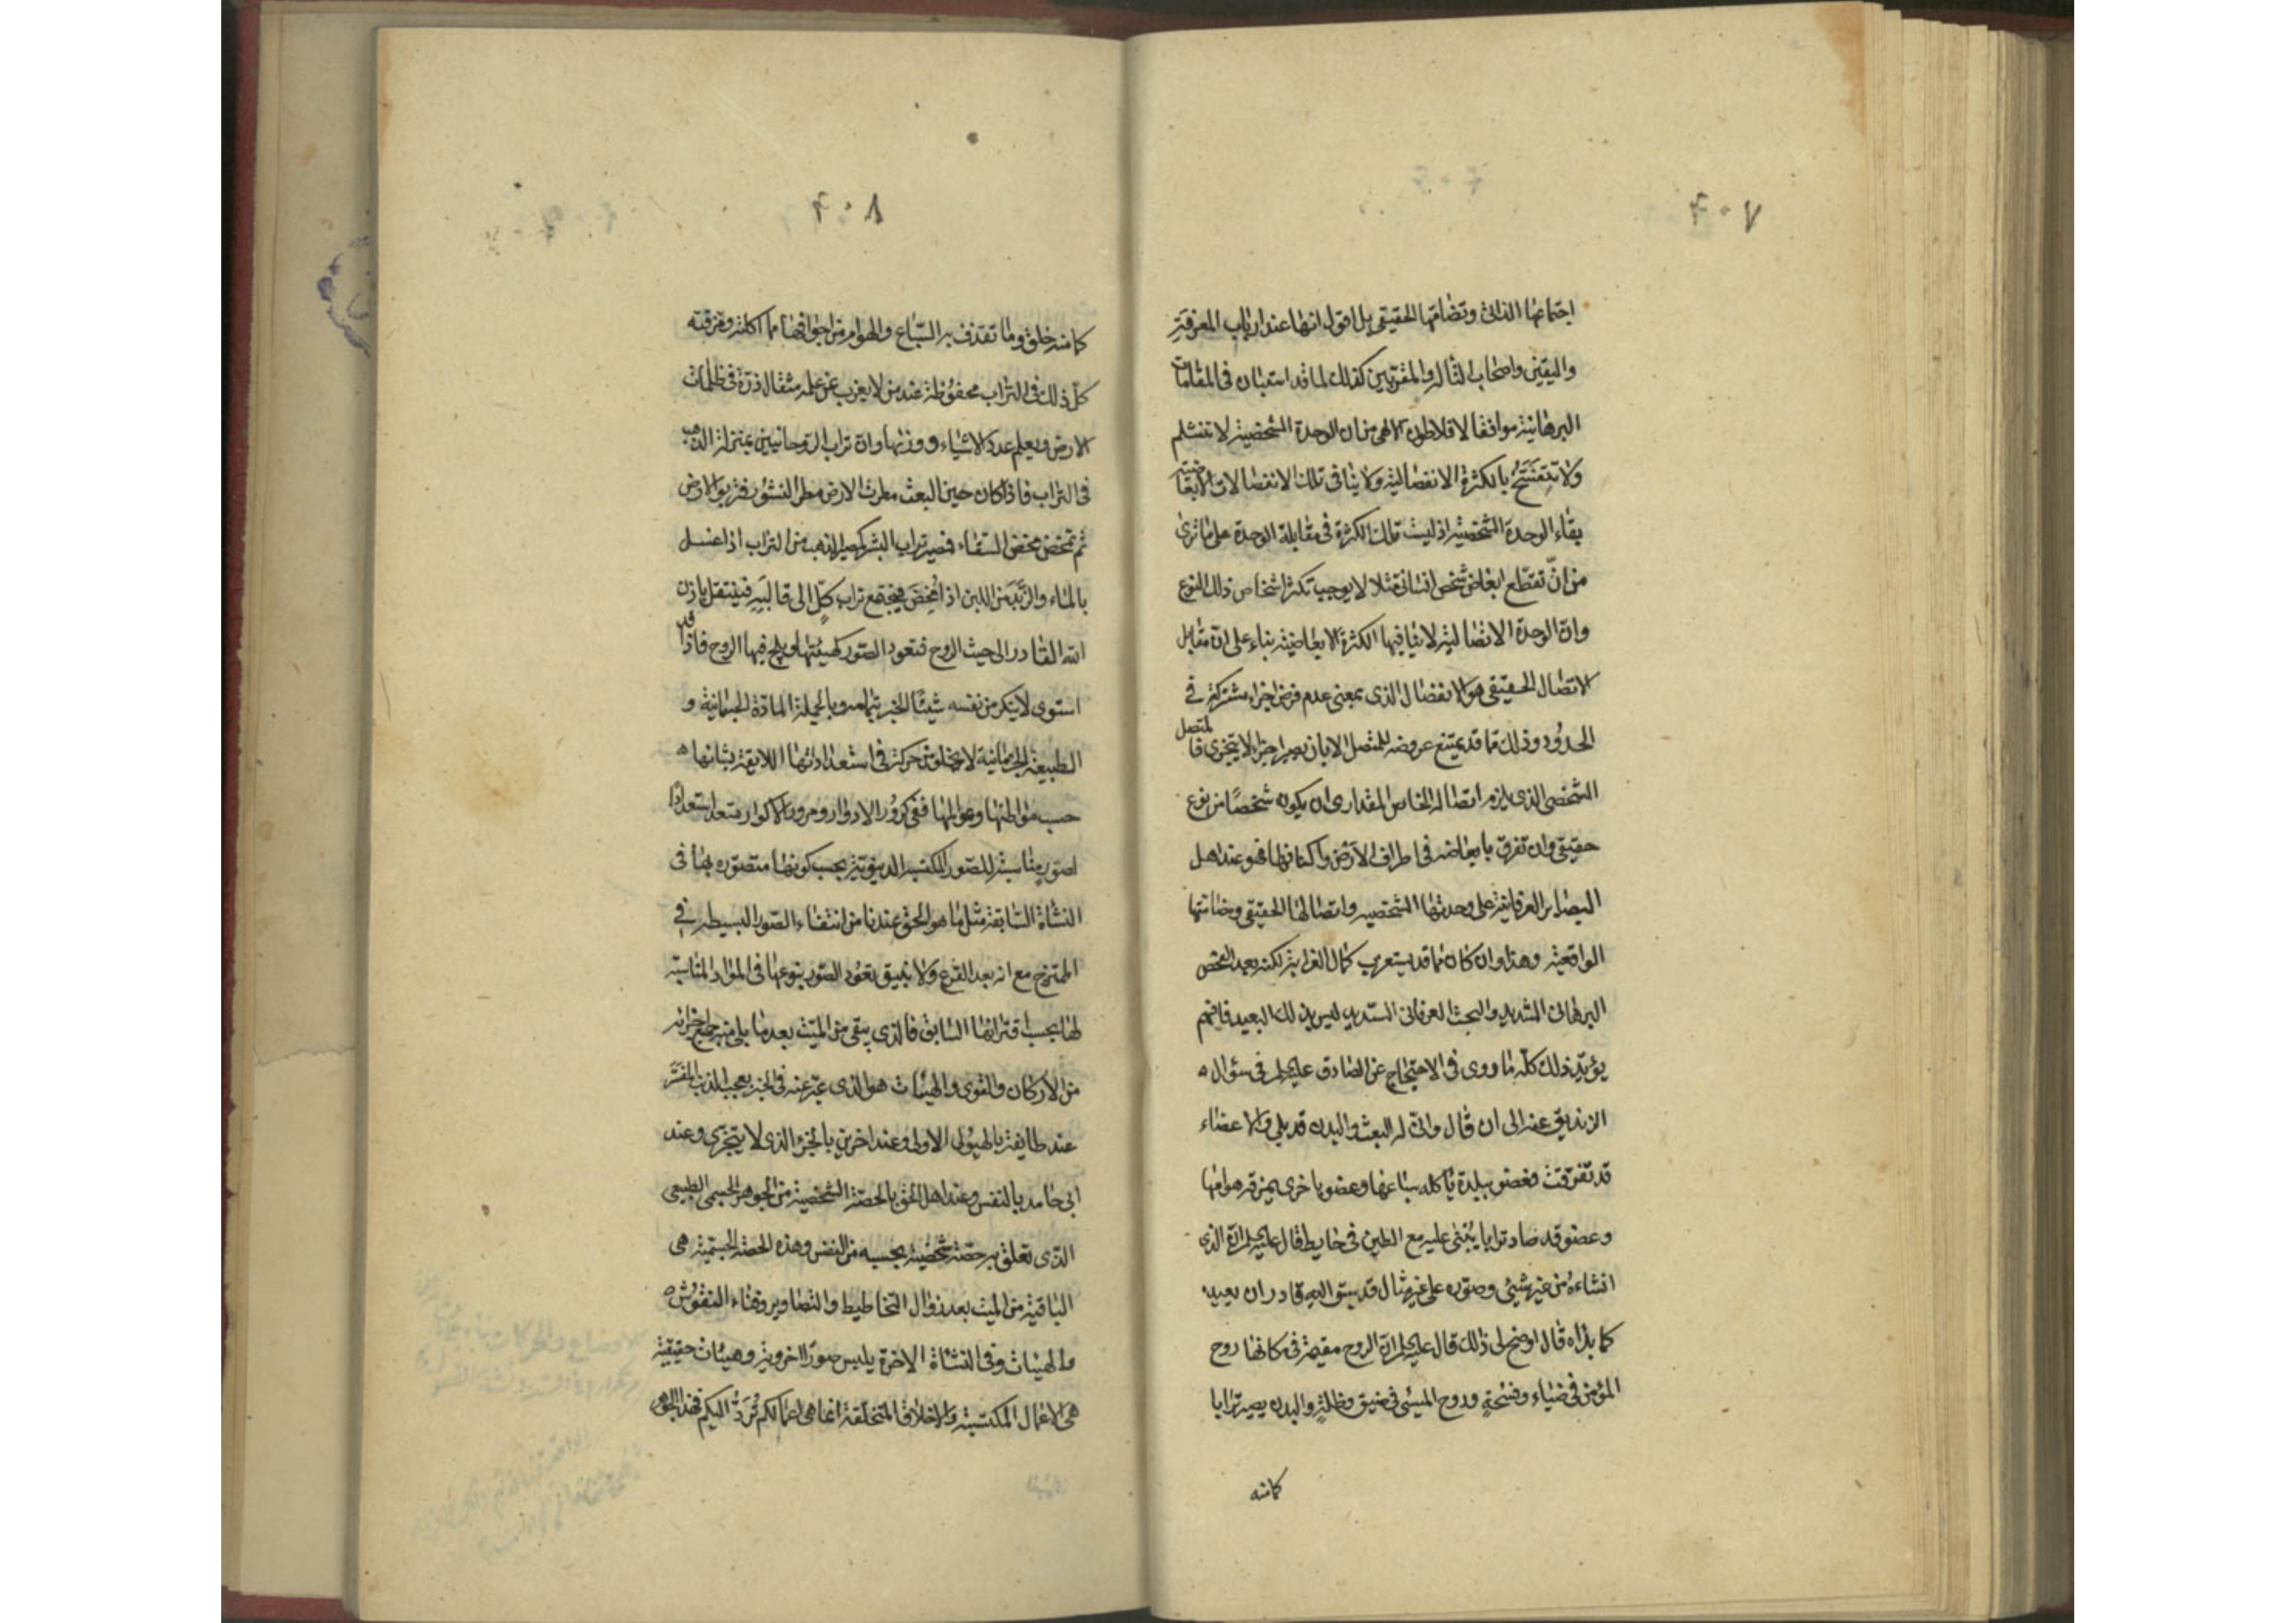 ٢٠٧
اجتماعها الذاتى وتضامها الحقيقى بل اقول انها عند ارباب المعرفة
واليقين واصحاب التاله والمقربين كذلك لما قد استبان فى المقامات
البرهانية موافقا لافلاطون الالهى من ان الوحدة الشخصية لا تنثلم
ولا تتفسخ بالكثرة الانفصالية ولا ينافى تلك الانفصالات الابعاضية
بقاء الوحدة الشخصية اذ ليست تلك الكثرة فى مقابلة الوحدة على ما ترى
من انّ تقطّع ابعاض شخص انسانى مثلا لا يوجب تكثر اشخاص ذلك النوع
وان الوحدة الاتصالية لا ينافيها الكثرة الابعاضية بناء على ان مقابل
الاتصال الحقيقى هو الانفصال الذى بمعنى عدم فرض اجزاء مشتركة فى
الحدود وذلك مما قد يمتنع عروضه للمتصل الا بان يصير اجزاء لا يتجزى فالمتصل
الشخصى الذى يلزم اتصاله الخاص المقدارى ان يكون شخصًا من نوع
حقيقى وان تفرق بابعاضه فى اطراف الارض واكنافها فهو عند اهل
البصاير العرفانية على وحدتها الشخصية واتصالها الحقيقى وضامتها
الواقعية وهذا وان كان مما قد يستغرب كمال الغرابة لكنه بعد الفحص
البرهانى الشديد والبحث العرفانى السديد ليس بذلك البعيد فافهم
يؤيّد ذلك كلّه ما روى فى الاحتجاج عن الصادق عليه السلم فى سؤال
الزنديق عنه الى ان قال وانّى له البعث والبدن قد بلى والاعضاء
قد تفرقت فعضو ببلدة يأكله سباعها وعضو باخرى يمزقه هوامها
وعضو قد صار ترابا يُبْنى عليه مع الطين فى حايط قال عليه السلم ان الذى
انشاءه من غير شيئى وصوّره على غير مثال قد سبق اليه قادر ان يعيده
كما بدأه قال اوضح لى ذلك قال عليه السلم ان الروح مقيمة فى مكانها روح
المؤمن فى ضياء وفسحةٍ وروح المسيئى فى ضيق وظلمةٍ والبدن يصير ترابا
كما منه
٢٠٨
كما منه خلق وما تقذف به السّباع والهوام من اجوافها مما اكلته ومزقته
كلّ ذلك فى التراب محفوظة عند من لا يعزب عن علمه مثقال ذرّة فى ظلمات
الارض ويعلم عدد الاشياء ووزنها وان تراب الروحانيين بمنزلة الذهب
فى التراب فاذا كان حين البعث مطرت الارض مطر النشور فتربو الارض
ثم تمخض مخض السقاء فيصير تراب البشر كمصير الذهب من التراب اذا غسل
بالماء والزَّبَد من اللبن اذا مُخِضَ فيجتمع تراب كلٍّ الى قالَبِهِ فينتقل باذن
الله القادر الى حيث الروح فتعود الصور كهيئتها ويلج فيها الروح فاذا قد
استوى لا ينكر من نفسه شيئًا الخبر بتمامه وبالجملة المادّة الجسمانية و
الطبيعة الجرمانية لا يخلو من حركة فى استعداداتها اللايقة بشانها
حسب مواطنها وعوالمها ففى كرور الادوار ومرور الاكوار يستعد استعدادا
لصورٍ مناسبة للصور المكتسبة الدنيوية بحسب كونها متصوّره بها فى
النشاة السّابقة مثل ما هو الحق عندنا من انتفاء الصّور البسيطه فى
الممتزج مع انه بعد القرع والانبيق يعود الصّور بنوعها فى المواد المناسبة
لها بحسب اقترانها السّابق فالذى يبقى من الميّت بعد ما بلى منه جميع اجزائه
من الاركان والقوى والهيئات هو الذى عبّر عنه فى الخبر بعجب الذنب المفسَّر
عند طايفة بالهيولى الاولى وعند اخرين بالجزء الذى لا يتجزى وعند
ابى حامد بالنفس وعند اهل الحق بالحصّة الشخصية من الجوهر الجسمى الطبيعى
الذى تعلق به حصّة شخصية بحسبه من النفس وهذه الحصة الجسمية هى
الباقية من الميت بعد زوال التخاطيط والتصاوير وفناء النقوش
والهيئات وفى النشاة الاخرة يلبس صورًا اخروية وهيئات حقيقية
هى الاعمال المكتسبة والاخلاق المتخلقة انما هى اعمالكم تُرَدُّ اليكم فهذا الجوهر